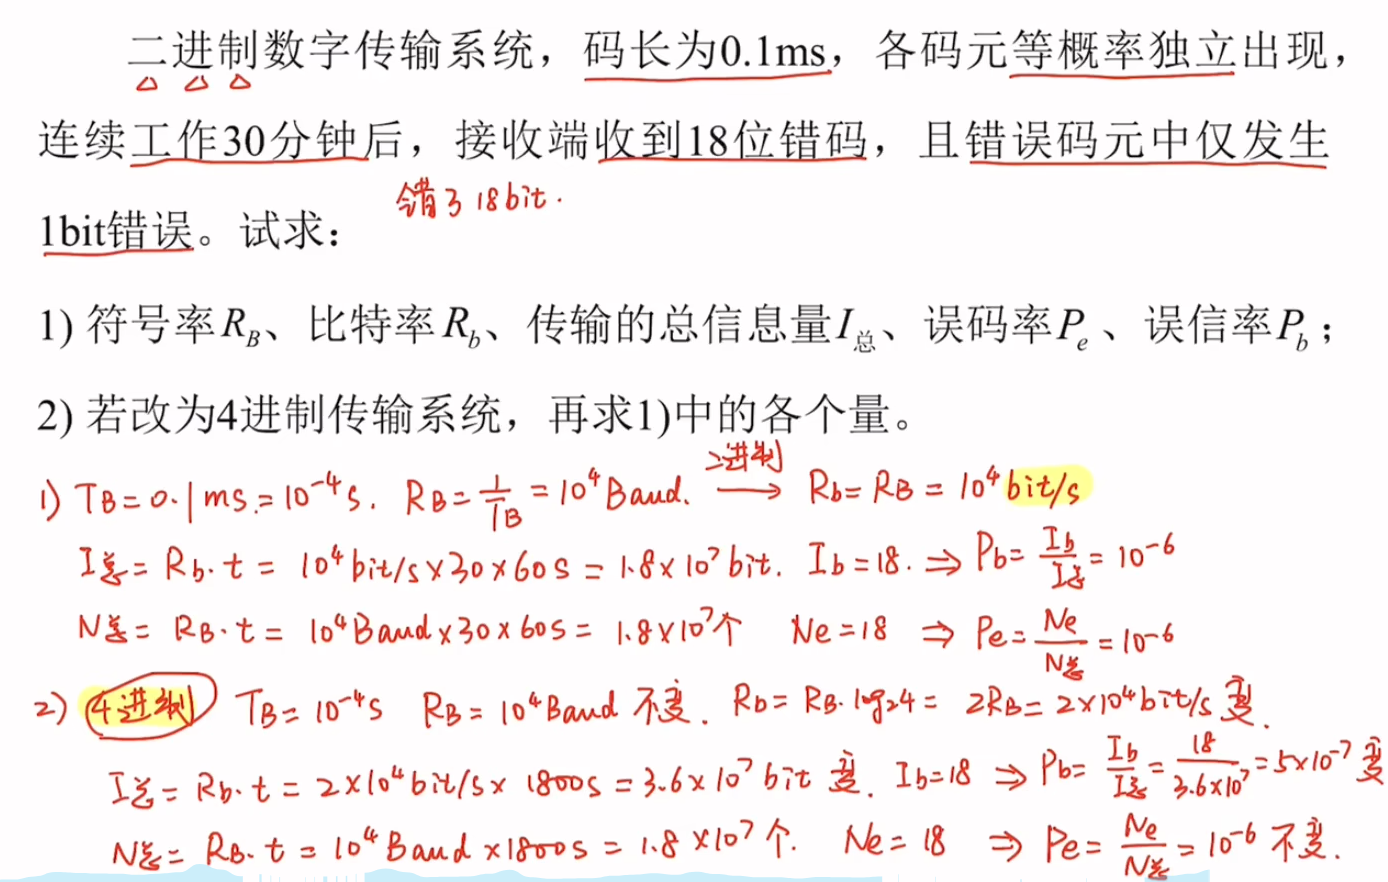 二进制数字传输系统，码长为0.1ms，各码元等概率独立出现，
连续工作30分钟后，接收端收到18位错码，且错误码元中仅发生
错了18bit.
1bit错误。试求：
1) 符号率R_B、比特率R_b、传输的总信息量I_总、误码率P_e、误信率P_b；
2) 若改为4进制传输系统，再求1)中的各个量。
1) T_B=0.1ms.=10^-4 s. R_B=1/T_B=10^4 Baud. 2进制→ R_b=R_B=10^4 bit/s
I总=R_b·t=10^4 bit/s×30×60s=1.8×10^7 bit. I_b=18. ⇒ P_b=I_b/I总=10^-6
N总=R_B·t=10^4 Baud×30×60s=1.8×10^7个 Ne=18 ⇒ Pe=Ne/N总=10^-6
2) 4进制 T_B=10^-4 s R_B=10^4 Baud 不变. R_b=R_B·log_2 4=2R_B=2×10^4 bit/s 变.
I总=R_b·t=2×10^4 bit/s×1800s=3.6×10^7 bit 变. I_b=18 ⇒ P_b=I_b/I总=18/3.6×10^7=5×10^-7 变
N总=R_B·t=10^4 Baud×1800s=1.8×10^7个. Ne=18 ⇒ Pe=Ne/N总=10^-6 不变.